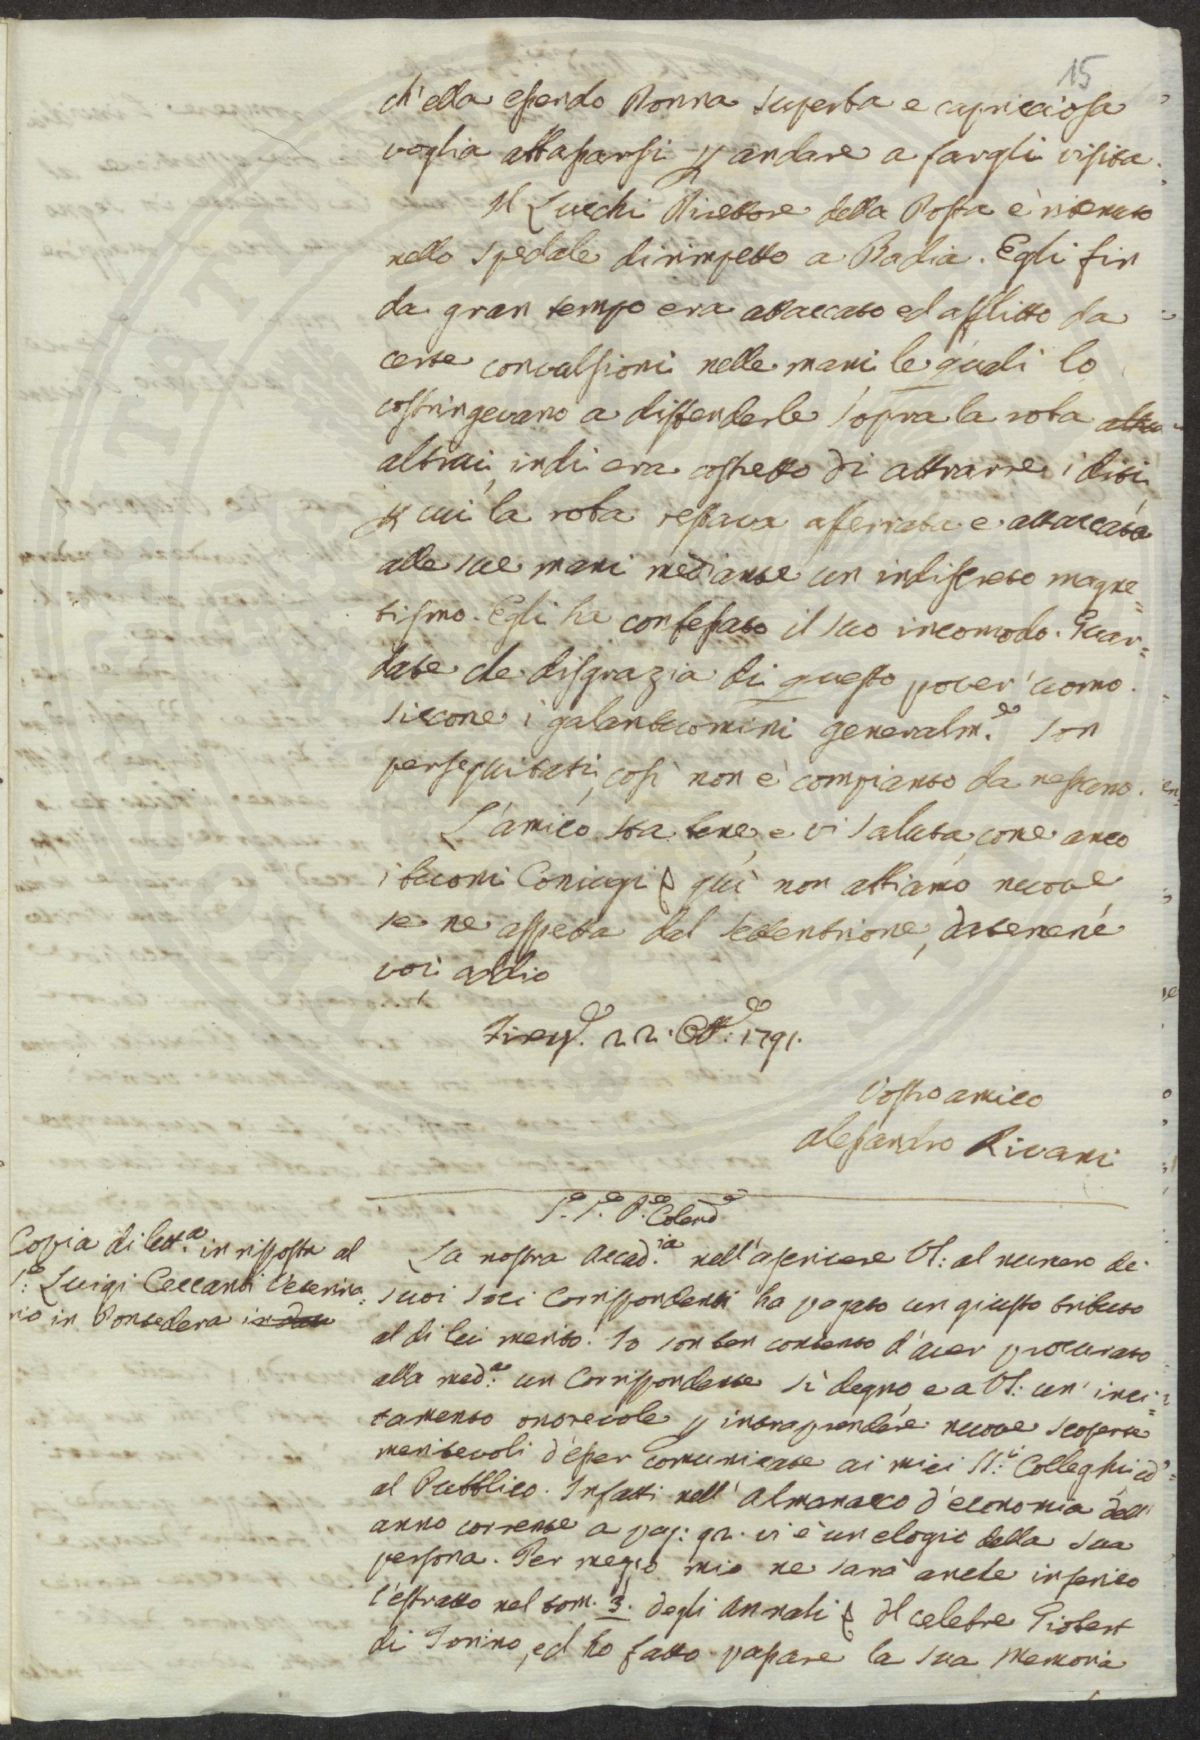 15
ch'ella essendo Donna superba e capricciosa
voglia abbassarsi p andare a fargli visita.
Il Lucchi Direttore della Posta è ritenuto
nello spedale dirimpetto a Badia. Egli fin
da gran tempo era attaccato ed afflitto da
certe convulsioni nelle mani le quali lo
costringevano a distenderle sopra la roba altru
altrui, indi era costretto di attrarre i diti,
p cui la roba restava afferrata e attaccata
alle sue mani mediante un indiscreto magne=
tismo. Egli ha confessato il suo incomodo. Guar=
date che disgrazia di questo pover'uomo.
siccome i galantuomini generalm.te son
perseguitati, così non è compianto da nessuno.
L'amico sta bene, e vi saluta come anco
i buoni Coniugi & quì non abbiamo nuove
se ne aspetta dal settentrione, datemene
voi, addio
Firen.e 22. Ott.e 1791.
Vostro amico
Alessandro Rivani
S.e S.e P.ne Colend.o
Copia di lett.a in risposta al
S.e Luigi Ceccanti Veterina=
rio in Pontedera
La nostra Accad.ia nell'ascrivere VS: al numero de
suoi Soci Corrispondenti ha pagato un giusto tributo
al di lei merito. Io son ben contento d'aver procurato
alla med.a un Corrispondente sì degno, e a VS: un' inci=
tamento onorevole p intraprendere nuove scoperte
meritevoli d'esser comunicate ai miei SS.i Colleghi, ed
al Pubblico. Infatti nell'Almanacco d'economia dell'
anno corrente a pag: 92. vi è un elogio della sua
persona. Per mezzo mio ne sarà anche inserito
l'estratto nel tom. 3. degli Annali & Il celebre Giobert
di Torino, ed ho fatto passare la sua Memoria